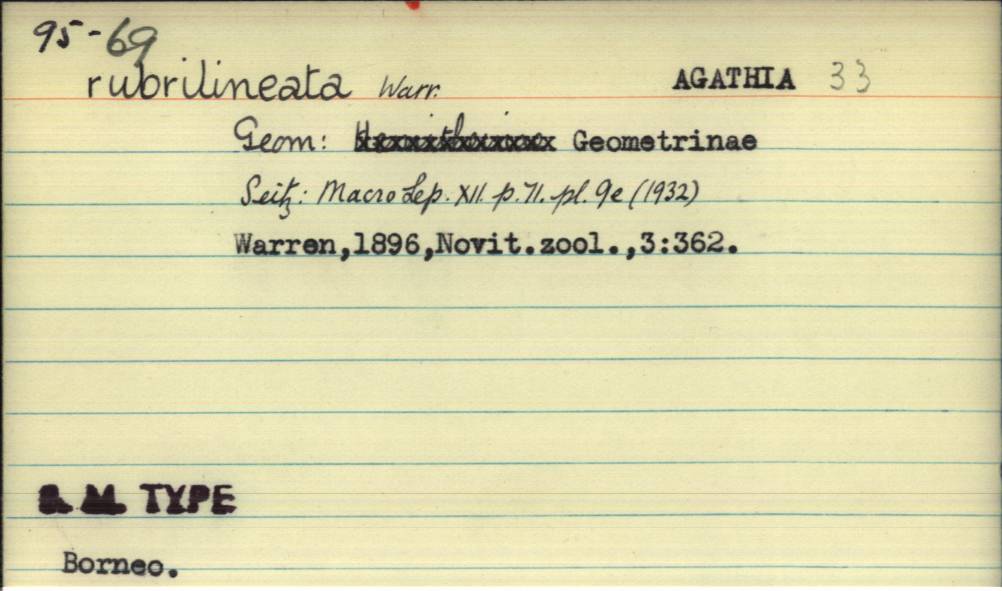 95-69
rubrilineata Warr. AGATHIA 33
Geom: Hemitheinae Geometrinae
Seitz: Macro Lep. XII. p. 71. pl. 9e (1932)
Warren,1896,Novit.zool.,3:362.
B. M. TYPE
Borneo.